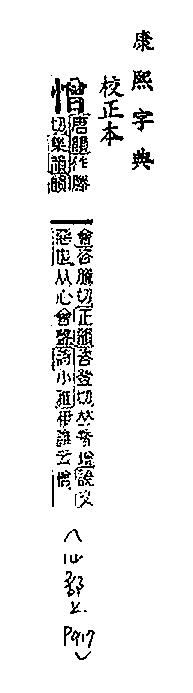 康熙字典
校正本
憎
唐韻作滕
切集韻韻
會咨騰切正韻咨登切𠀤音增說文
惡也从心曾聲詩小雅伊誰云憎
(心部上 P417)